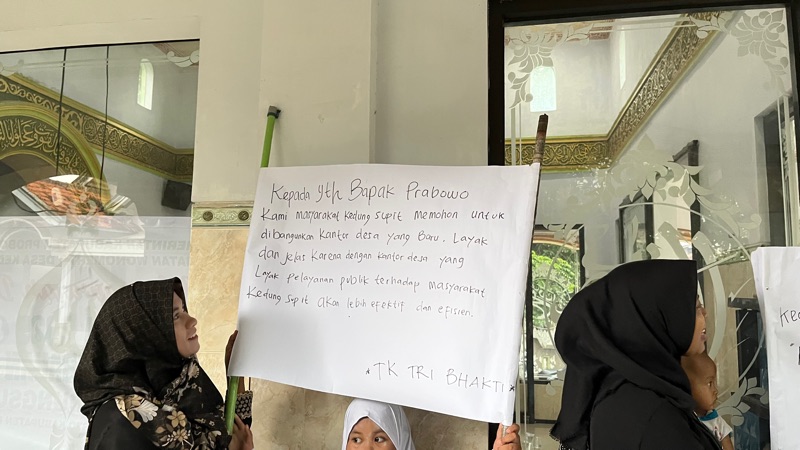 Kepada yth Bapak Prabowo
Kami masyarakat kedung supit Memohon untuk
dibangunkan kantor desa yang Baru. Layak
dan jelas karena dengan kantor desa yang
Layak pelayanan publik terhadap masyarakat
Kedung supit akan lebih efektif dan efisien.
* TK TRI BHAKTI *